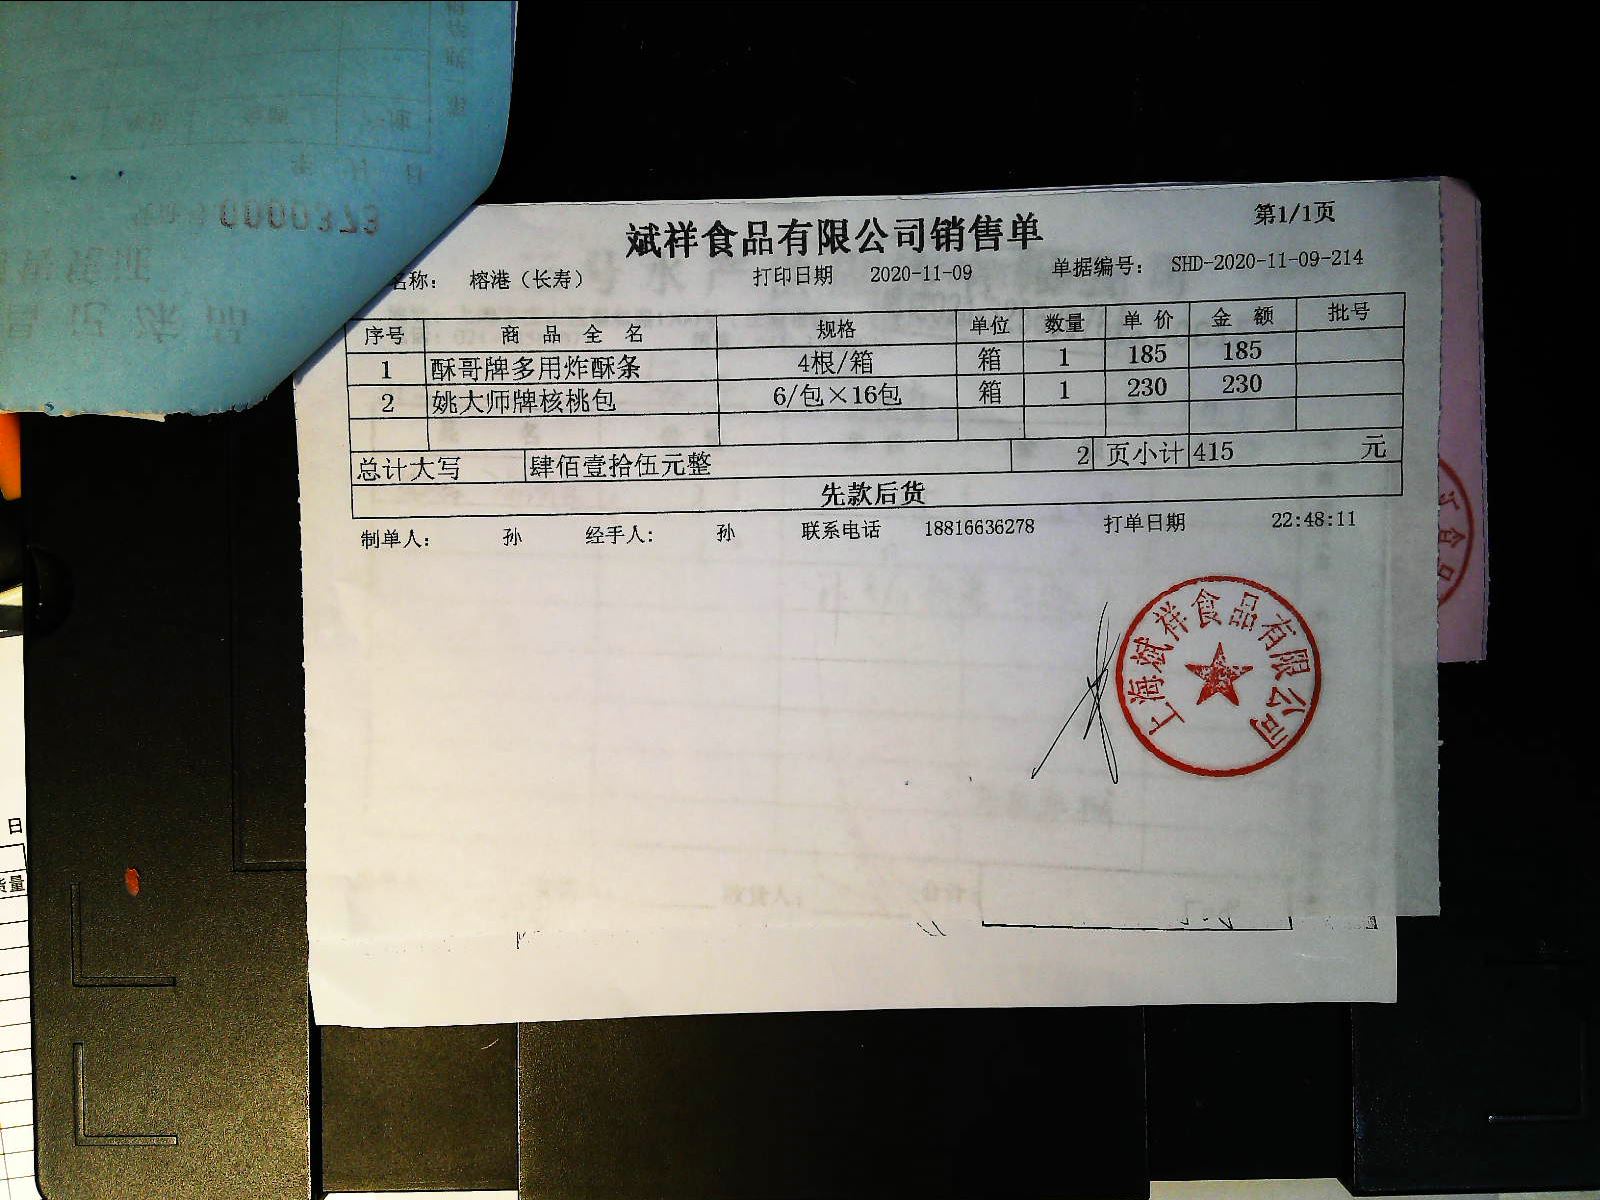 斌祥食品有限公司销售单
第1/1页
名称: 榕港（长寿） 打印日期 2020-11-09 单据编号: SHD-2020-11-09-214
序号 商品全名 规格 单位 数量 单价 金额 批号
1 酥哥牌多用炸酥条 4根/箱 箱 1 185 185
2 姚大师牌核桃包 6/包×16包 箱 1 230 230
总计大写 肆佰壹拾伍元整 2 页小计 415 元
先款后货
制单人: 孙 经手人: 孙 联系电话 18816636278 打单日期 22:48:11
上海斌祥食品有限公司
0000373
日
货量